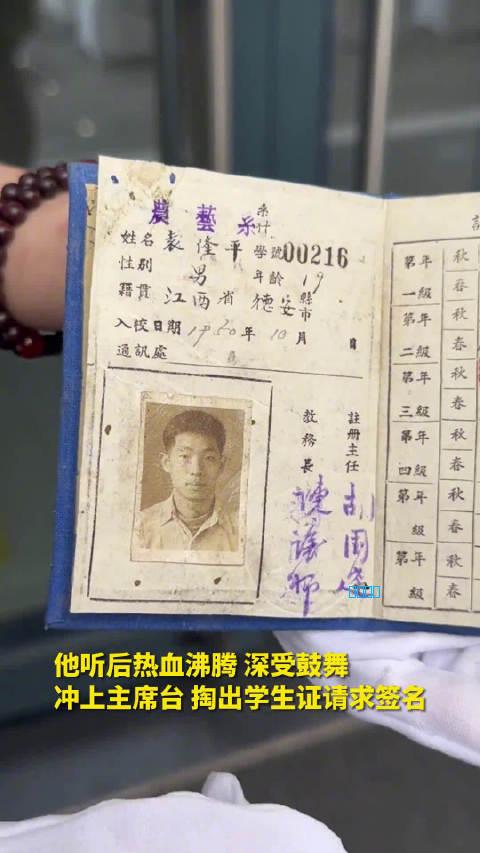 農藝系
系
科
姓名 袁隆平 學號 00216
性别 男 年龄 19
籍貫 江西省 德安 縣
市
入校日期 1950年 10月 日
通訊處
註册主任
教務長
第一年級 秋
春
第二年級 秋
春
第三年級 秋
春
第四年級 秋
春
第年級 秋
春
第年級 秋
春
他听后热血沸腾 深受鼓舞
冲上主席台 掏出学生证请求签名